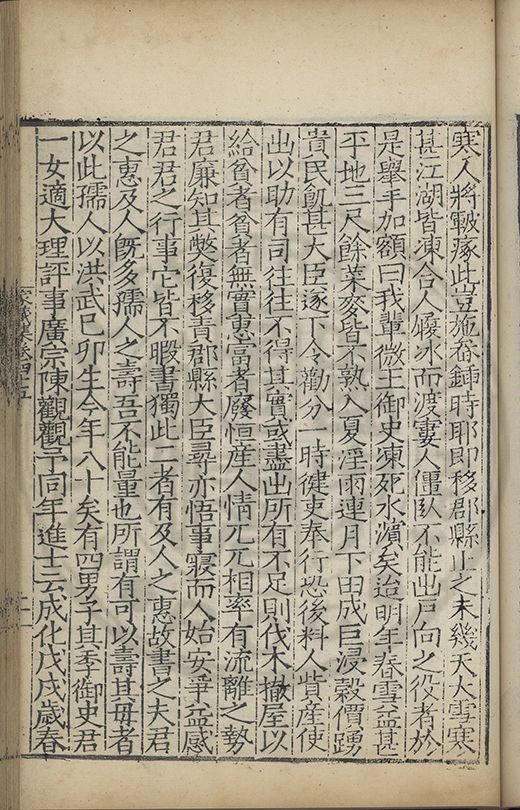 寒人將皸瘃此豈施畚鍤時耶即移郡縣止之未幾天大雪寒
甚江湖皆凍合人緣冰而渡寠人僵臥不能出戶向之役者於
是舉手加額曰我輩微王御史凍死水濱矣迨明年春雪益甚
平地三尺餘菜麥皆不熟入夏淫雨連月下田成巨浸穀價踴
貴民飢甚大臣遂下令勸分一時徤吏奉行恐後料人貲産使
出以助有司往往不得其實或盡出所有不足則伐木撤屋以
給貧者貧者無實惠富者廢恒産人情兀兀相率有流離之勢
君廉知其獘復移責郡縣大臣尋亦悟事寢而人始安爭益感
君君之行事它皆不暇書獨此二者有及人之惠故書之夫君
之惠及人旣多孺人之壽吾不能量也所謂有可以壽其母者
以此孺人以洪武己卯生今年八十矣有四男子其季御史君
一女適大理評事廣宗陳觀觀予同年進士云成化戊戌歲春